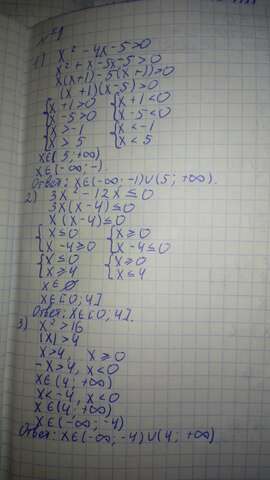 №1
1) x² - 4x - 5 > 0
x² + x - 5x - 5 > 0
x(x+1) - 5(x+1) > 0
(x+1)(x-5) > 0
{ x+1>0 { x+1<0
{ x-5>0 { x-5<0
{ x>-1 { x<-1
{ x>5 { x<5
x∈(5; +∞)
x∈(-∞; -)
Ответ: x∈(-∞; -1)∪(5; +∞).
2) 3x² - 12x ≤ 0
3x(x-4) ≤ 0
x(x-4) ≤ 0
{ x≤0 { x≥0
{ x-4≥0 { x-4≤0
{ x≤0 { x≥0
{ x≥4 { x≤4
x∈∅
x∈[0; 4]
Ответ: x∈[0; 4].
3) x² > 16
|x| > 4
x>4, x≥0
-x>4, x<0
x∈(4; +∞)
x<-4, x<0
x∈(4; +∞)
x∈(-∞; -4)
Ответ: x∈(-∞; -4)∪(4; +∞)